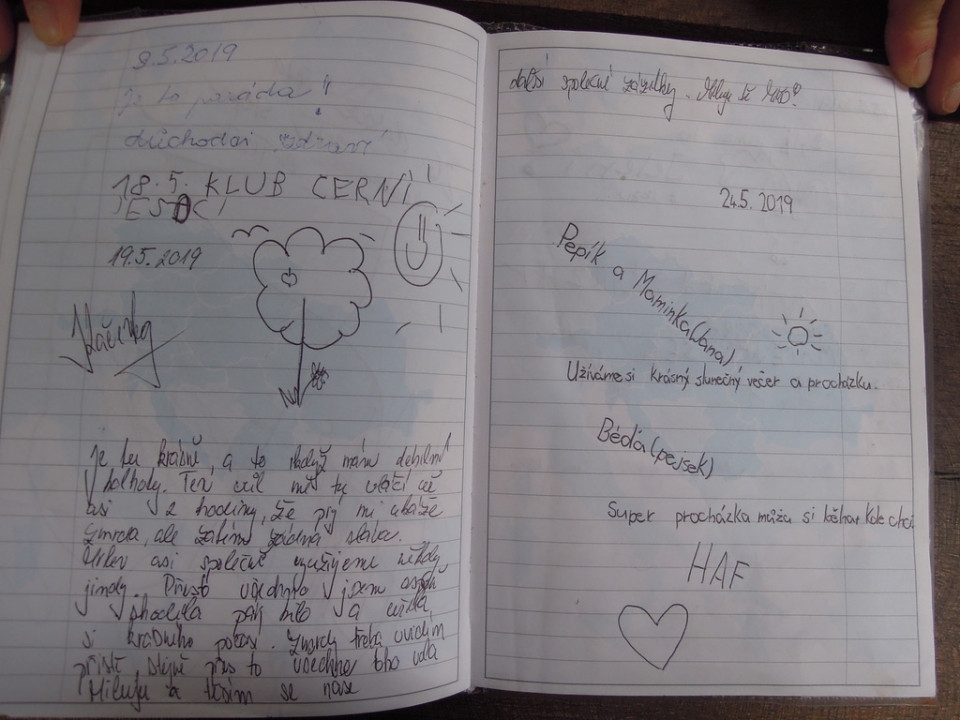 9.5.2019
Je to paráda!!
důchodci
18.5. KLUB ČERNÍ
JESDCI
19.5.2019
Kačenka
je tu krásně, a to i když mám debilní
kalhoty. Ten vůl mě tu vláčí už
asi 2 hodiny, že prý mi ukáže
zmrda, ale zatím žádná sláva.
asi společně využijeme někdy
jindy. Přesto všechno jsem aspoň
shodila pár kilo a užila
si krásného počasí. Zmrdy třeba uvidím
příště, stejně přes to všechno toho vola
Miluju a těším se na
další společné zážitky. Miluju tě
24.5.2019
Pepík a Maminka(Jana)
Užíváme si krásný slunečný večer a procházku.
Béďa(pejsek)
Super procházka můžu si běhat kde chci
HAF